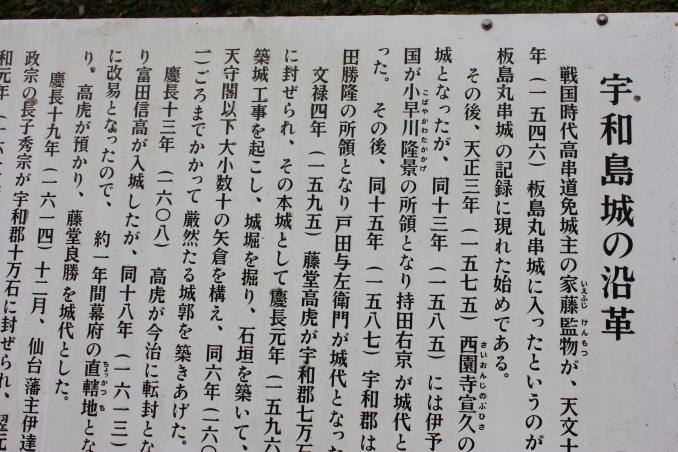 宇和島城の沿革
戦国時代高串道免城主の家藤監物が、天文十
いえふじ けんもつ
年（一五四六）板島丸串城に入ったというのが
板島丸串城の記録に現れた始めである。
その後、天正三年（一五七五）西園寺宣久の
さいおんじのぶひさ
城となったが、同十三年（一五八五）には伊予
国が小早川隆景の所領となり持田右京が城代と
こばやかわたかかげ
った。その後、同十五年（一五八七）宇和郡は
田勝隆の所領となり戸田与左衛門が城代となった
文禄四年（一五九五）藤堂高虎が宇和郡七万石
に封ぜられ、その本城として慶長元年（一五九六
築城工事を起こし、城堀を掘り、石垣を築いて、
天守閣以下大小数十の矢倉を構え、同六年（一六〇
一）ごろまでかかって厳然たる城郭を築きあげた。
慶長十三年（一六〇八）高虎が今治に転封とな
り富田信高が入城したが、同十八年（一六一三）
に改易となったので、約一年間幕府の直轄地とな
ちょっかつち
り。高虎が預かり、藤堂良勝を城代とした。
慶長十九年（一六一四）十二月、仙台藩主伊達
政宗の長子秀宗が宇和郡十万石に封ぜられ、翌元
和元年（一六